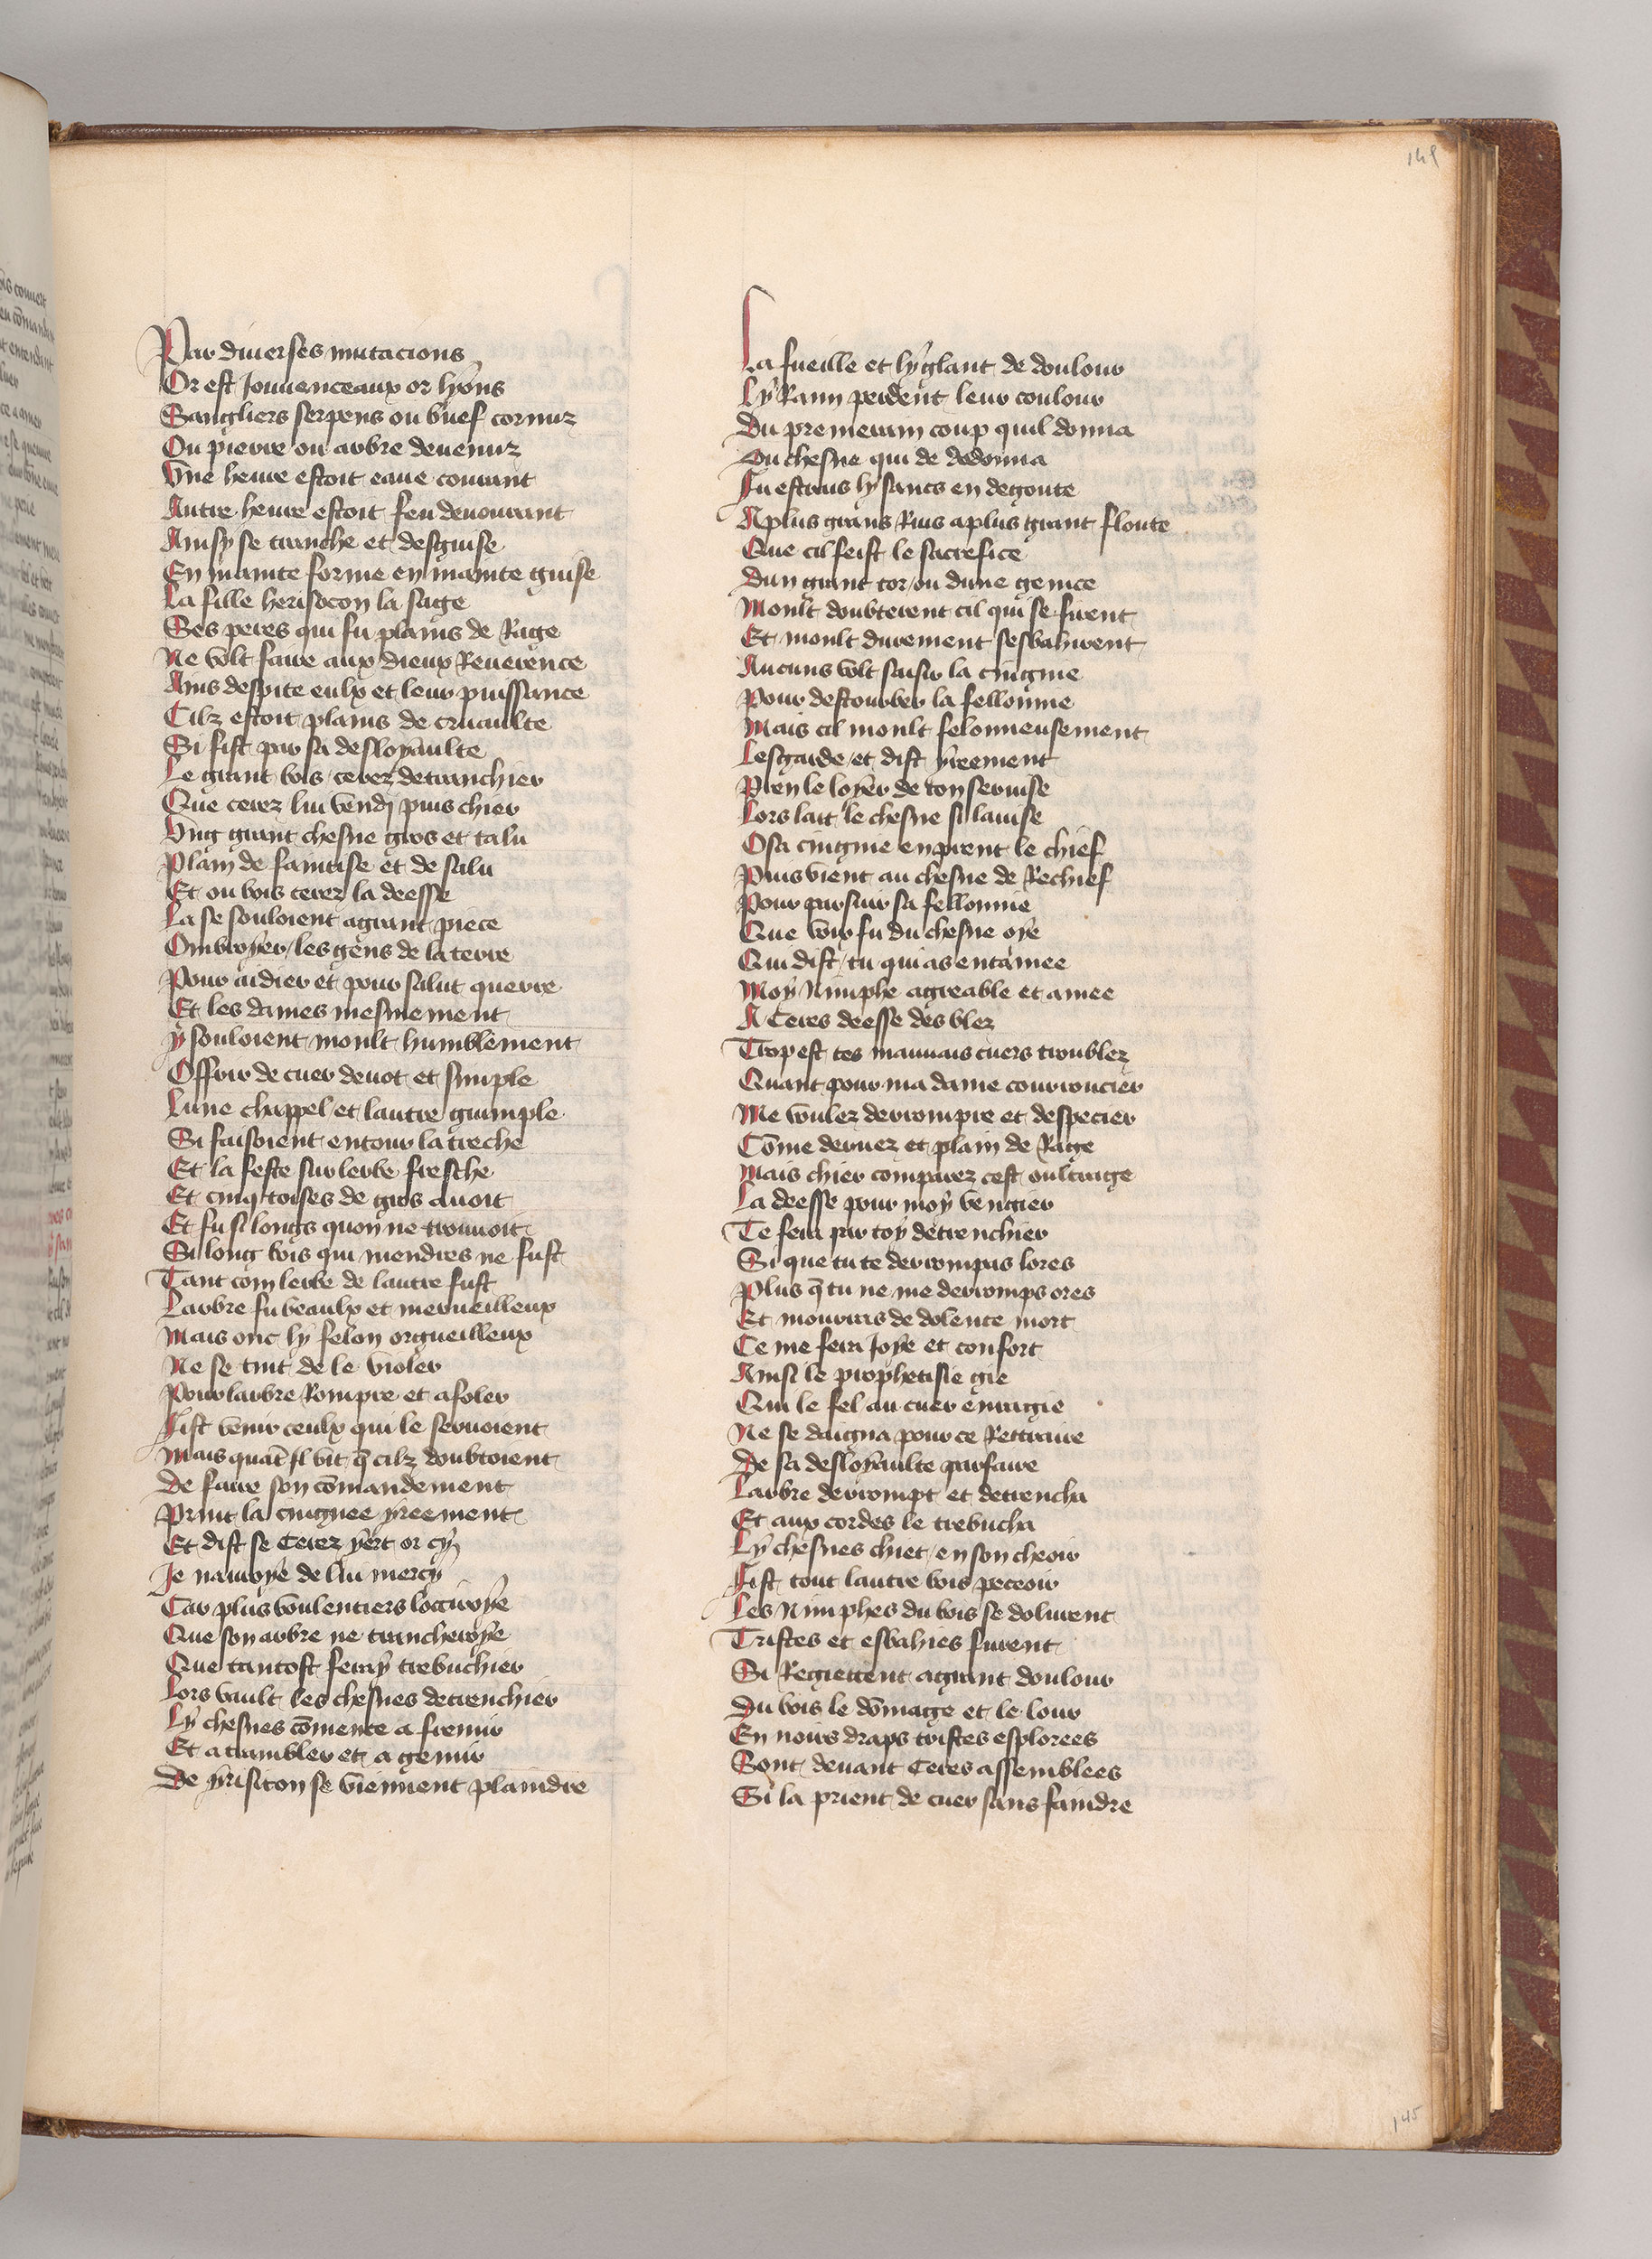 149
Par diuerses mutacions
Or est Jouuenceaux or lyons
Sangliers serpens ou buef cornuz
Ou pierre ou arbre deuenuz
Vne heure estoit eaue courant
Autre heure estoit feu deuourant
Ainsy se tranche et desguise
En mainte forme en mainte guise
La fille herisocon la sage
Ses peres qui fu plains de Rage
Ne volt faire aux dieux Reuerence
Ains despite eulx et leur puissance
Cilz estoit plains de cruaulte
Si fist par sa desloyaulte
Le grant bois cerez detranchier
Que cerez lui vendj puis chier
Vng grant chesne gros et talu
Plain de faintise et de salu
Et ou bois cerez la deesse
La se souloient agrant piece
Ombroyer les gens de la terre
Pour aidier et pour salut querre
Et les dames mesmement
y souloient moult humblement
Offrir de cuer deuot et simple
Lune chappel et lautre guimple
Si faisoient entour la treche
Et la feste sur lerbe fresche
Et cinq toises de gros auoit
Et fu si longs quon ne trouuoit
Si long bois qui mendres ne fust
Tant com lerbe de lautre fust
Larbre fu beaulx et merueilleux
Mais onc ly felon orgueilleux
Ne se tint de le violer
Pour larbre Rompre et afoler
Fist venir ceulx qui le seruoient
Mais quāt il vit q̄ cilz doubtoient
De faire son cōmandement
Print la cuignee yreement
Et dist se Cerez yert or cy
Je nauroye de lui mercy
Car plus voulentiers locciroye
Que son arbre ne trancheroye
Que tantost feray trebuchier
Lors vault les chesnes detrenchier
Ly chesnes cōmence a fremir
Et a trambler et a gemir
De yrisiton se viennent plaindre
La fueille et ly glant de doulour
Ly Raim perdent leur coulour
Du premerain coup quil donna
Ou chesne qui de dodonna
Fu estrais ly sancs en degoute
A plus grans Rius a plus grant floute
Que cil feist le sacrefice
Dun grant tor ou dune genice
Moult doubterent cil qui se furent
Et moult durement sesbahirent
Aucuns volt saisir la cuignie
Pour destourber la fellonnie
Mais cil moult felonneusement
Lesgarde et dist yreement
Pren le loyer de ton seruise
Lors lait le chesne si lauise
O sa cuignie en prent le chief
Puis vient au chesne de Rechief
Pour parsuir sa fellonnie
Que voix fu du chesne oye
Qui dist tu qui as entamee
Moy Nimphe agreable et amee
A Ceres deesse des blez
Trop est tes mauuais cuers troublez
Quant pour ma dame courroucier
Me voulez derrompre et despecier
Cōme deruez et plain de Rage
Mais chier comparez cest oultrage
La deesse pour moy vengier
Te fera par toy detrenchier
Si que tu te derrompas lores
Plus q̄ tu ne me derromps ores
Et mourras de dolente mort
Ce me fera Joye et confort
Ainsi le prophetisie gie
Qui le fel au cuer enragie
Ne se daigna pour ce Rettraire
De sa desloyaulte parfaire
Larbre derrompt et detrencha
Et aux cordes le trebucha
Ly chesnes chiet en son cheoir
Fist tout lautre bois peceoir
Les Nimphes du bois se dolurent
Tristes et esbahies furent
Si Regretent a grant doulour
Du bois le dōmage et le lour
En noirs draps tristes esplorees
Sont deuant Ceres assemblees
Si la prient de cuer sans faindre
145